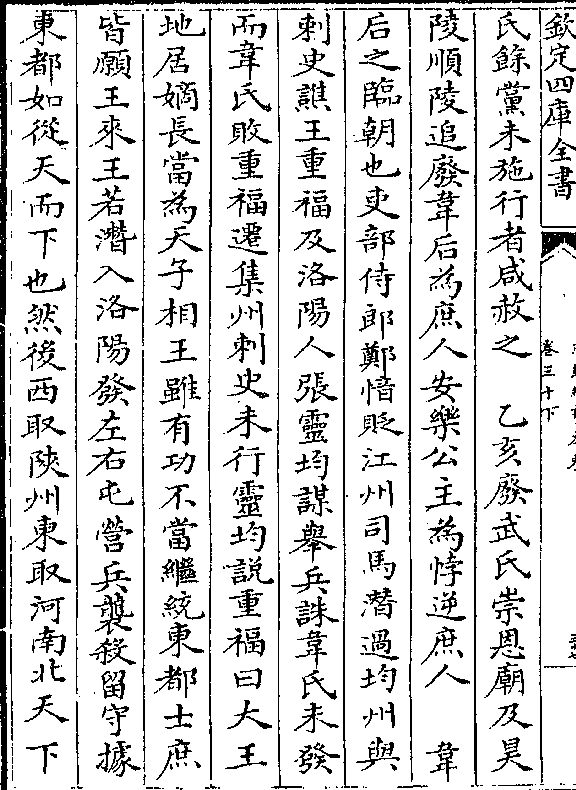 欽定四庫全書
卷三十下
氏餘黨未施行者咸赦之　乙亥廢武氏崇恩廟及昊
陵順陵追廢韋后為庶人安樂公主為悖逆庶人　韋
后之臨朝也吏部侍郎鄭愔貶江州司馬潛過均州與
刺史譙王重福及洛陽人張靈均謀舉兵誅韋氏未發
而韋氏敗重福遷集州刺史未行靈均說重福曰大王
地居嫡長當為天子相王雖有功不當繼統東都士庶
皆願王來王若潛入洛陽發左右屯營兵襲殺留守據
東都如從天而下也然後西取陝州東取河南北天下